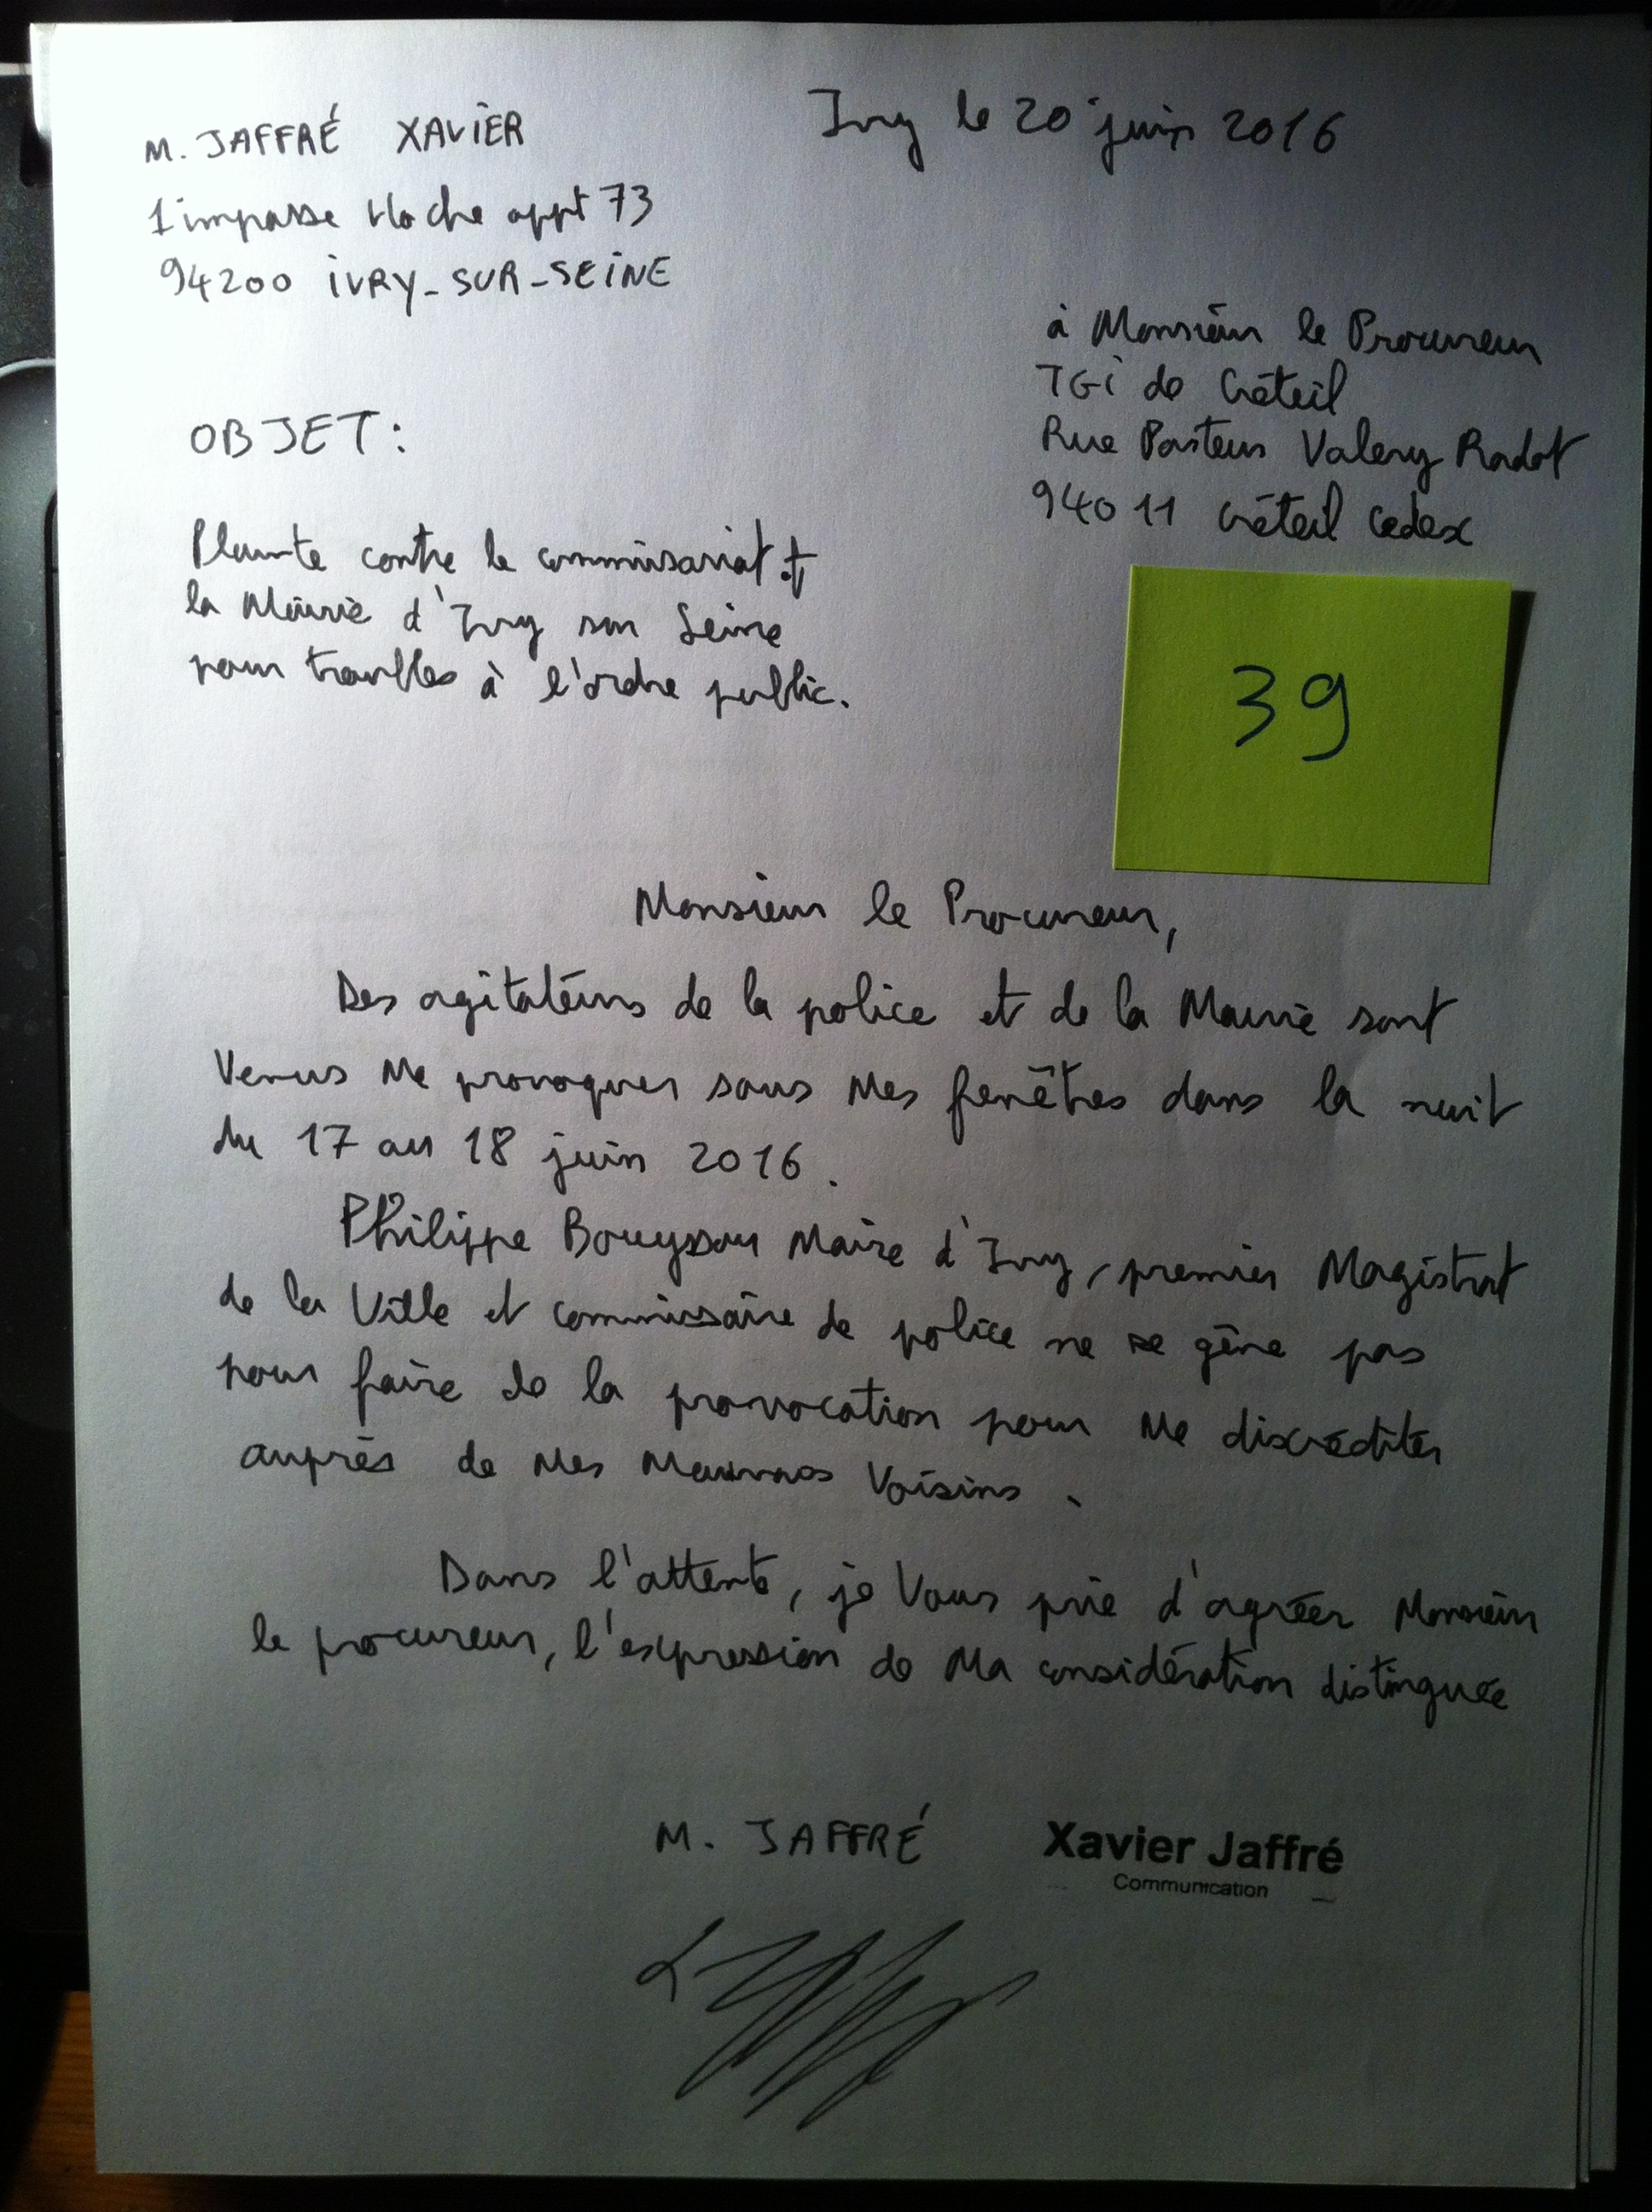 M. JAFFRÉ XAVIER
Ivry le 20 juin 2016
1 impasse Hoche appt 73
94200 IVRY-SUR-SEINE
à Monsieur le Procureur
TGI de Créteil
Rue Pasteur Valery Radot
94011 Créteil Cedex
OBJET :
Plainte contre le commissariat et
la Mairie d'Ivry sur Seine
pour troubles à l'ordre public.
39
Monsieur le Procureur,
Des agitateurs de la police et de la Mairie sont
Venus Me provoquer sous Mes fenêtres dans la nuit
du 17 au 18 juin 2016.
Philippe Bouyssou Maire d'Ivry, premier Magistrat
de la Ville et commissaire de police ne se gêne pas
pour faire de la provocation pour Me discréditer
auprès de Mes Mauvais Voisins.
Dans l'attente, je Vous prie d'agréer Monsieur
le procureur, l'expression de Ma considération distinguée
M. JAFFRÉ
Xavier Jaffré
Communication